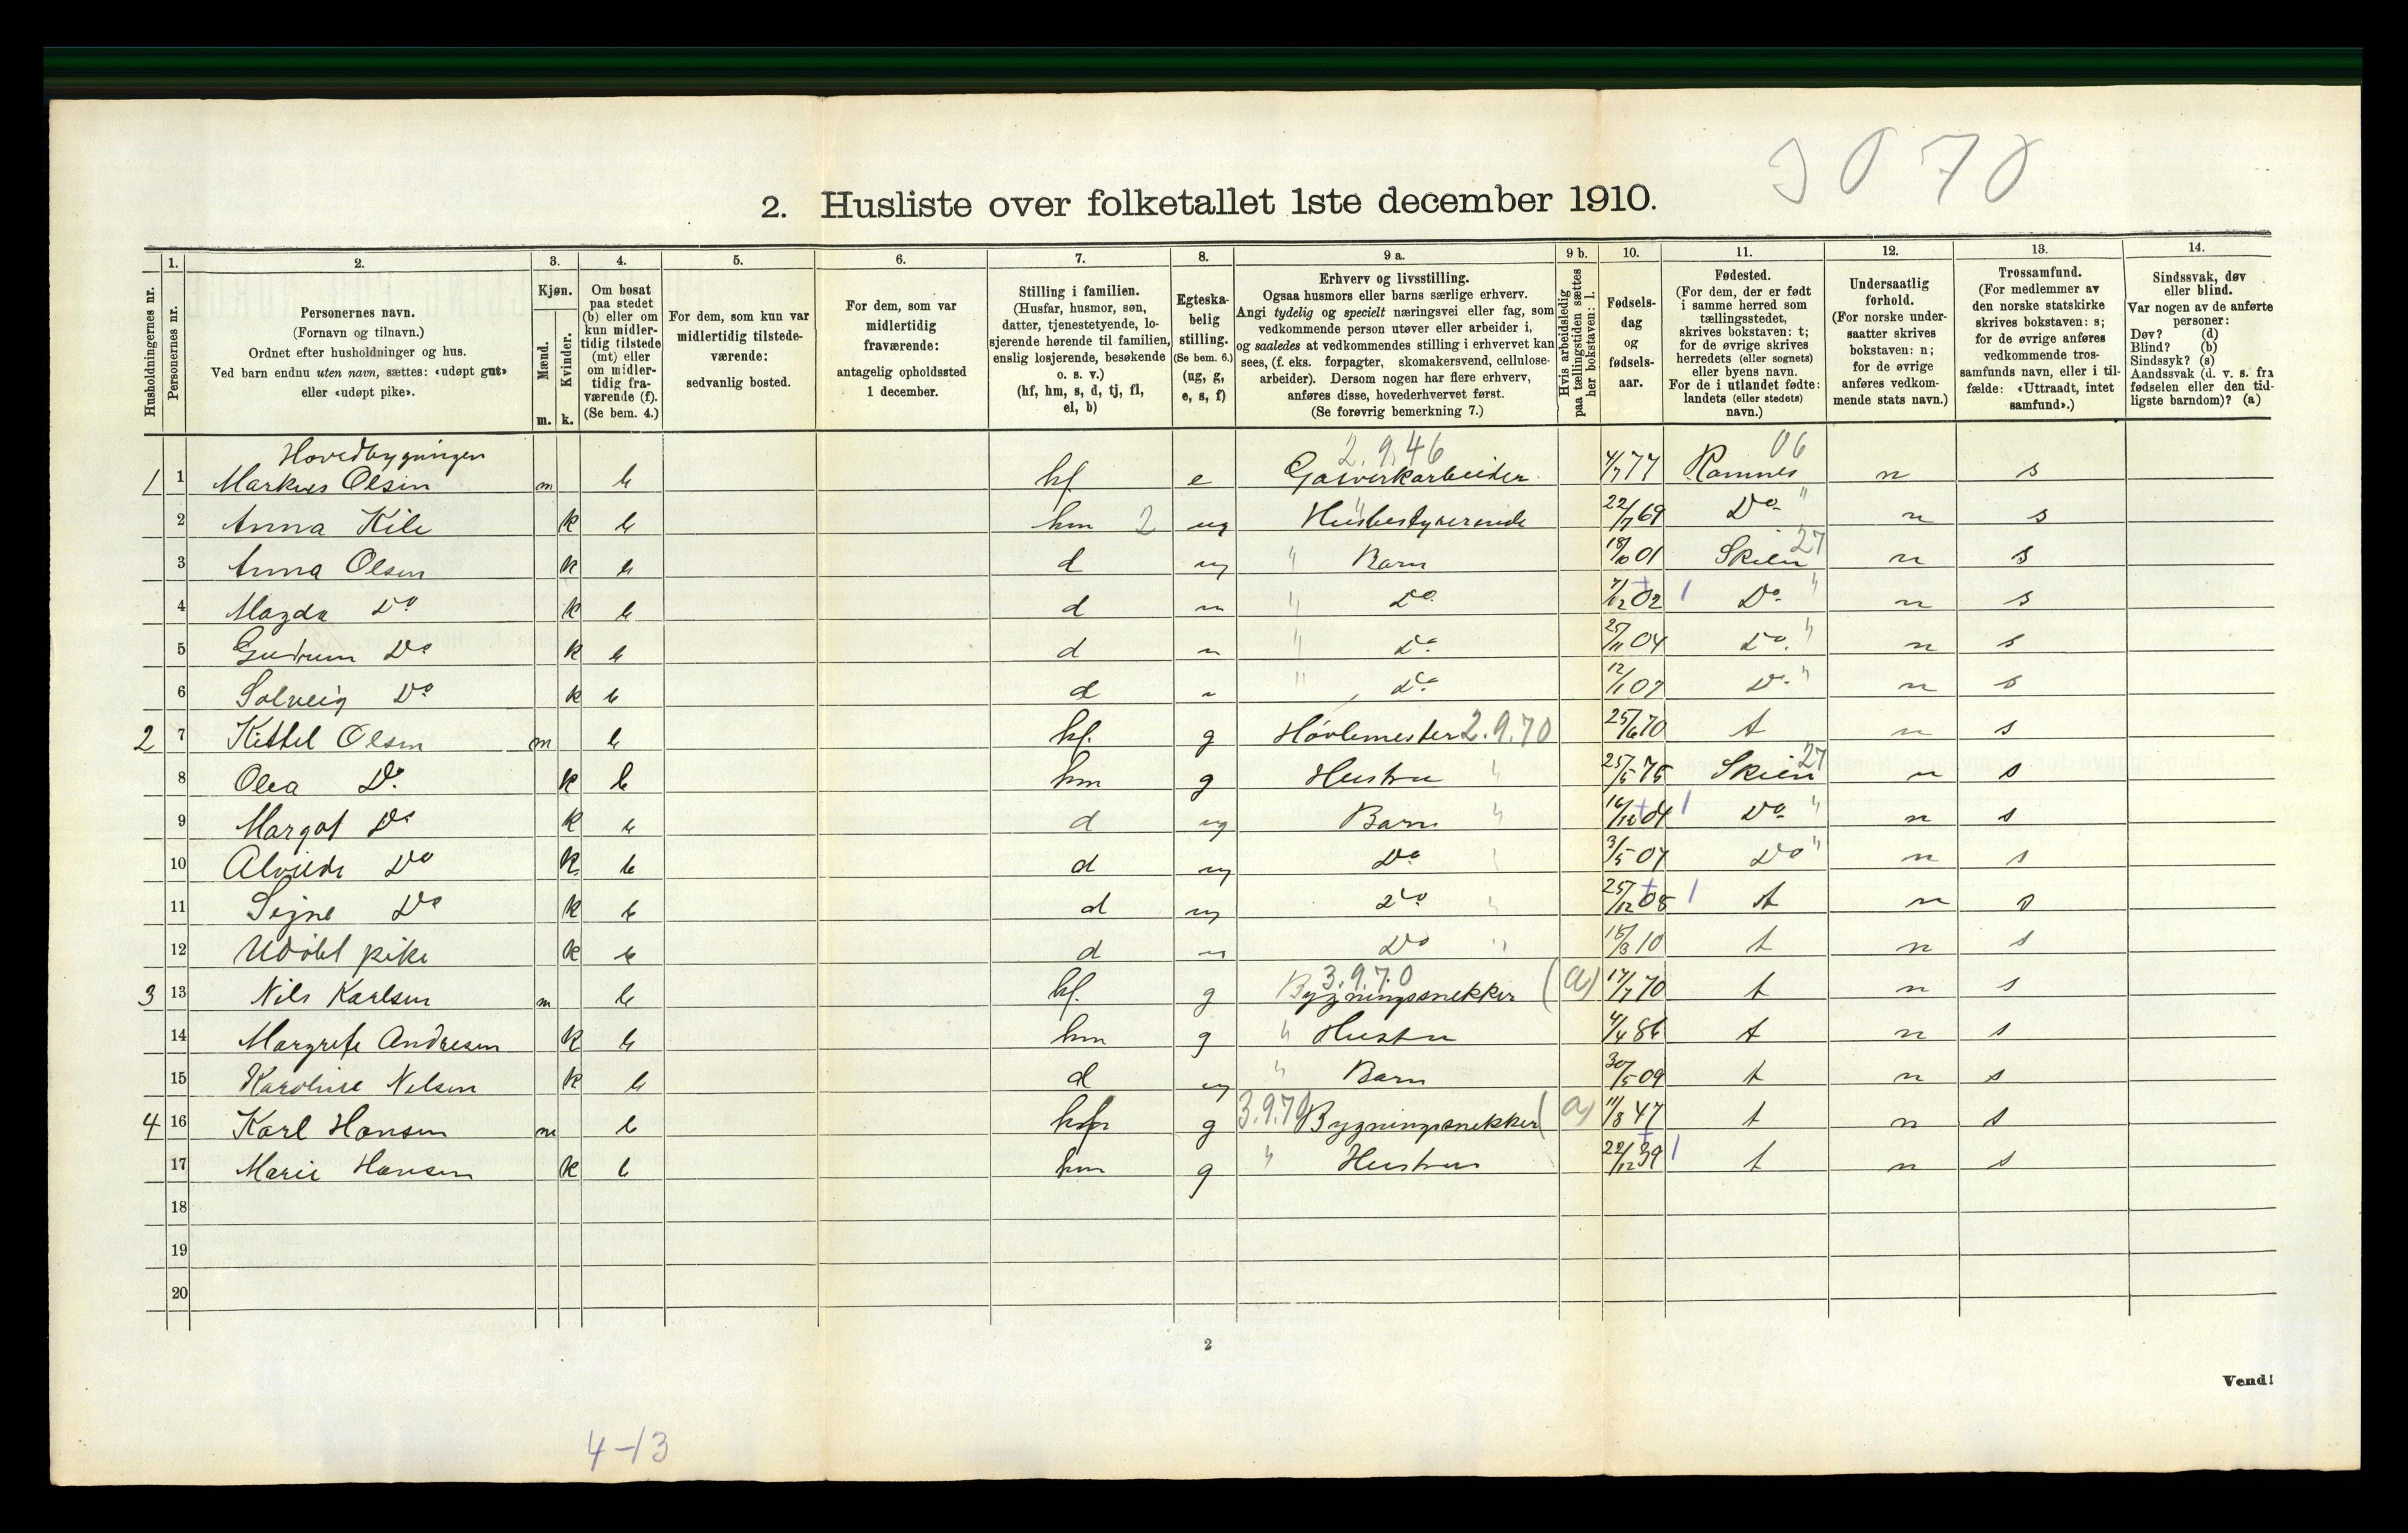 3070
2. Husliste over folketallet 1ste december 1910.
Husholdningernes nr.
1. Personernes nr.
2. Personernes navn. (Fornavn og tilnavn.) Ordnet efter husholdninger og hus. Ved barn endnu uten navn, sættes: «udøpt gut» eller «udøpt pike».
3. Kjøn. Mænd. m. Kvinder. k.
4. Om bosat paa stedet (b) eller om kun midlertidig tilstede (mt) eller om midlertidig fraværende (f). (Se bem. 4.)
5. For dem, som kun var midlertidig tilstedeværende: sedvanlig bosted.
6. For dem, som var midlertidig fraværende: antagelig opholdssted 1 december.
7. Stilling i familien. (Husfar, husmor, søn, datter, tjenestetyende, losjerende hørende til familien, enslig losjerende, besøkende o. s. v.) (hf, hm, s, d, tj, fl, el, b)
8. Egteskabelig stilling. (Se bem. 6.) (ug, g, e, s, f)
9 a. Erhverv og livsstilling. Ogsaa husmors eller barns særlige erhverv. Angi tydelig og specielt næringsvei eller fag, som vedkommende person utøver eller arbeider i, og saaledes at vedkommendes stilling i erhvervet kan sees, (f. eks. forpagter, skomakersvend, cellulosearbeider). Dersom nogen har flere erhverv, anføres disse, hovederhvervet først. (Se forøvrig bemerkning 7.)
9 b. Hvis arbeidsledig paa tællingstiden sættes her bokstaven: l.
10. Fødselsdag og fødselsaar.
11. Fødested. (For dem, der er født i samme herred som tællingsstedet, skrives bokstaven: t; for de øvrige skrives herredets (eller sognets) eller byens navn. For de i utlandet fødte: landets (eller stedets) navn.)
12. Undersaatlig forhold. (For norske undersaatter skrives bokstaven: n; for de øvrige anføres vedkommende stats navn.)
13. Trossamfund. (For medlemmer av den norske statskirke skrives bokstaven: s; for de øvrige anføres vedkommende trossamfunds navn, eller i tilfælde: «Uttraadt, intet samfund».)
14. Sindssvak, døv eller blind. Var nogen av de anførte personer: Døv? (d) Blind? (b) Sindssyk? (s) Aandssvak (d. v. s. fra fødselen eller den tidligste barndom)? (a)
Hovedbygningen 2.9.46 06
1 1 Markus Olsen m b hf e Gasverkarbeider 4/7 77 Ramnes n s
2 Anna Kile k b hm 2 ug " Husbestyrerinde 22/7 69 Do " n s
3 Anna Olsen k b d ug " Barn 18/10 01 Skien 27 n s
4 Magda Do k b d " " Do 7/12 02 1 Do " n s
5 Gudrun Do k b d " " Do 25/11 04 Do " n s
6 Solveig Do k b d " " Do 12/1 07 Do " n s
2 7 Kittel Olsen m b hf. g Høvlemester 2.9.70 25/6 70 t n s
8 Olea Do k b hm g Hustru " 25/5 75 Skien 27 n s
9 Margot Do k b d ug Barn " 16/12 04 1 Do " n s
10 Alvilde Do k b d ug Do " 3/5 07 Do " n s
11 Signe Do k b d ug Do " 25/12 08 1 t n s
12 Udøbt pike k b d " Do " 15/3 10 t n s
3 13 Nils Karlsen m b hf. g 3.9.70 Bygningssnekker (a) 17/7 70 t n s
14 Margrete Andresen k b hm g " Hustru 4/4 86 t n s
15 Karoline Nilsen k b d ug " Barn 30/5 09 t n s
4 16 Karl Hansen m b hf g 3.9.70 Bygningssnekker (a) 11/8 47 t n s
17 Marie Hansen k b hm g " Hustru 22/12 39 1 t n s
18
19
20
2
Vend!
4-13